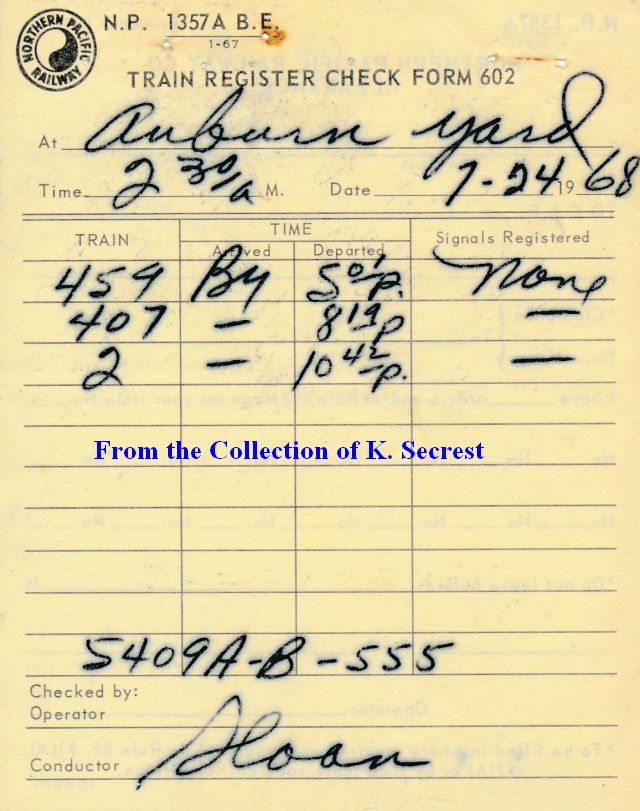 NORTHERN PACIFIC RAILWAY
N.P. 1357A B.E.
1-67
TRAIN REGISTER CHECK FORM 602
At Auburn Yard
Time 2 30/a M. Date 7-24 1968
TRAIN TIME Signals Registered
Arrived Departed
459 By 5 01/p. None
407 — 8 19/p —
2 — 10 42/p. —
From the Collection of K. Secrest
5409A-B-555
Checked by:
Operator
Conductor Sloan